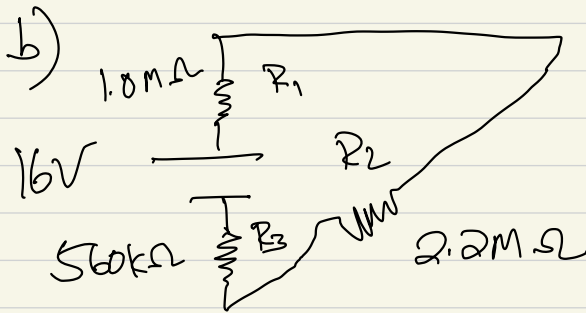 b)
1.0MΩ R₁
16V
R₂
560kΩ R₃
2.2MΩ